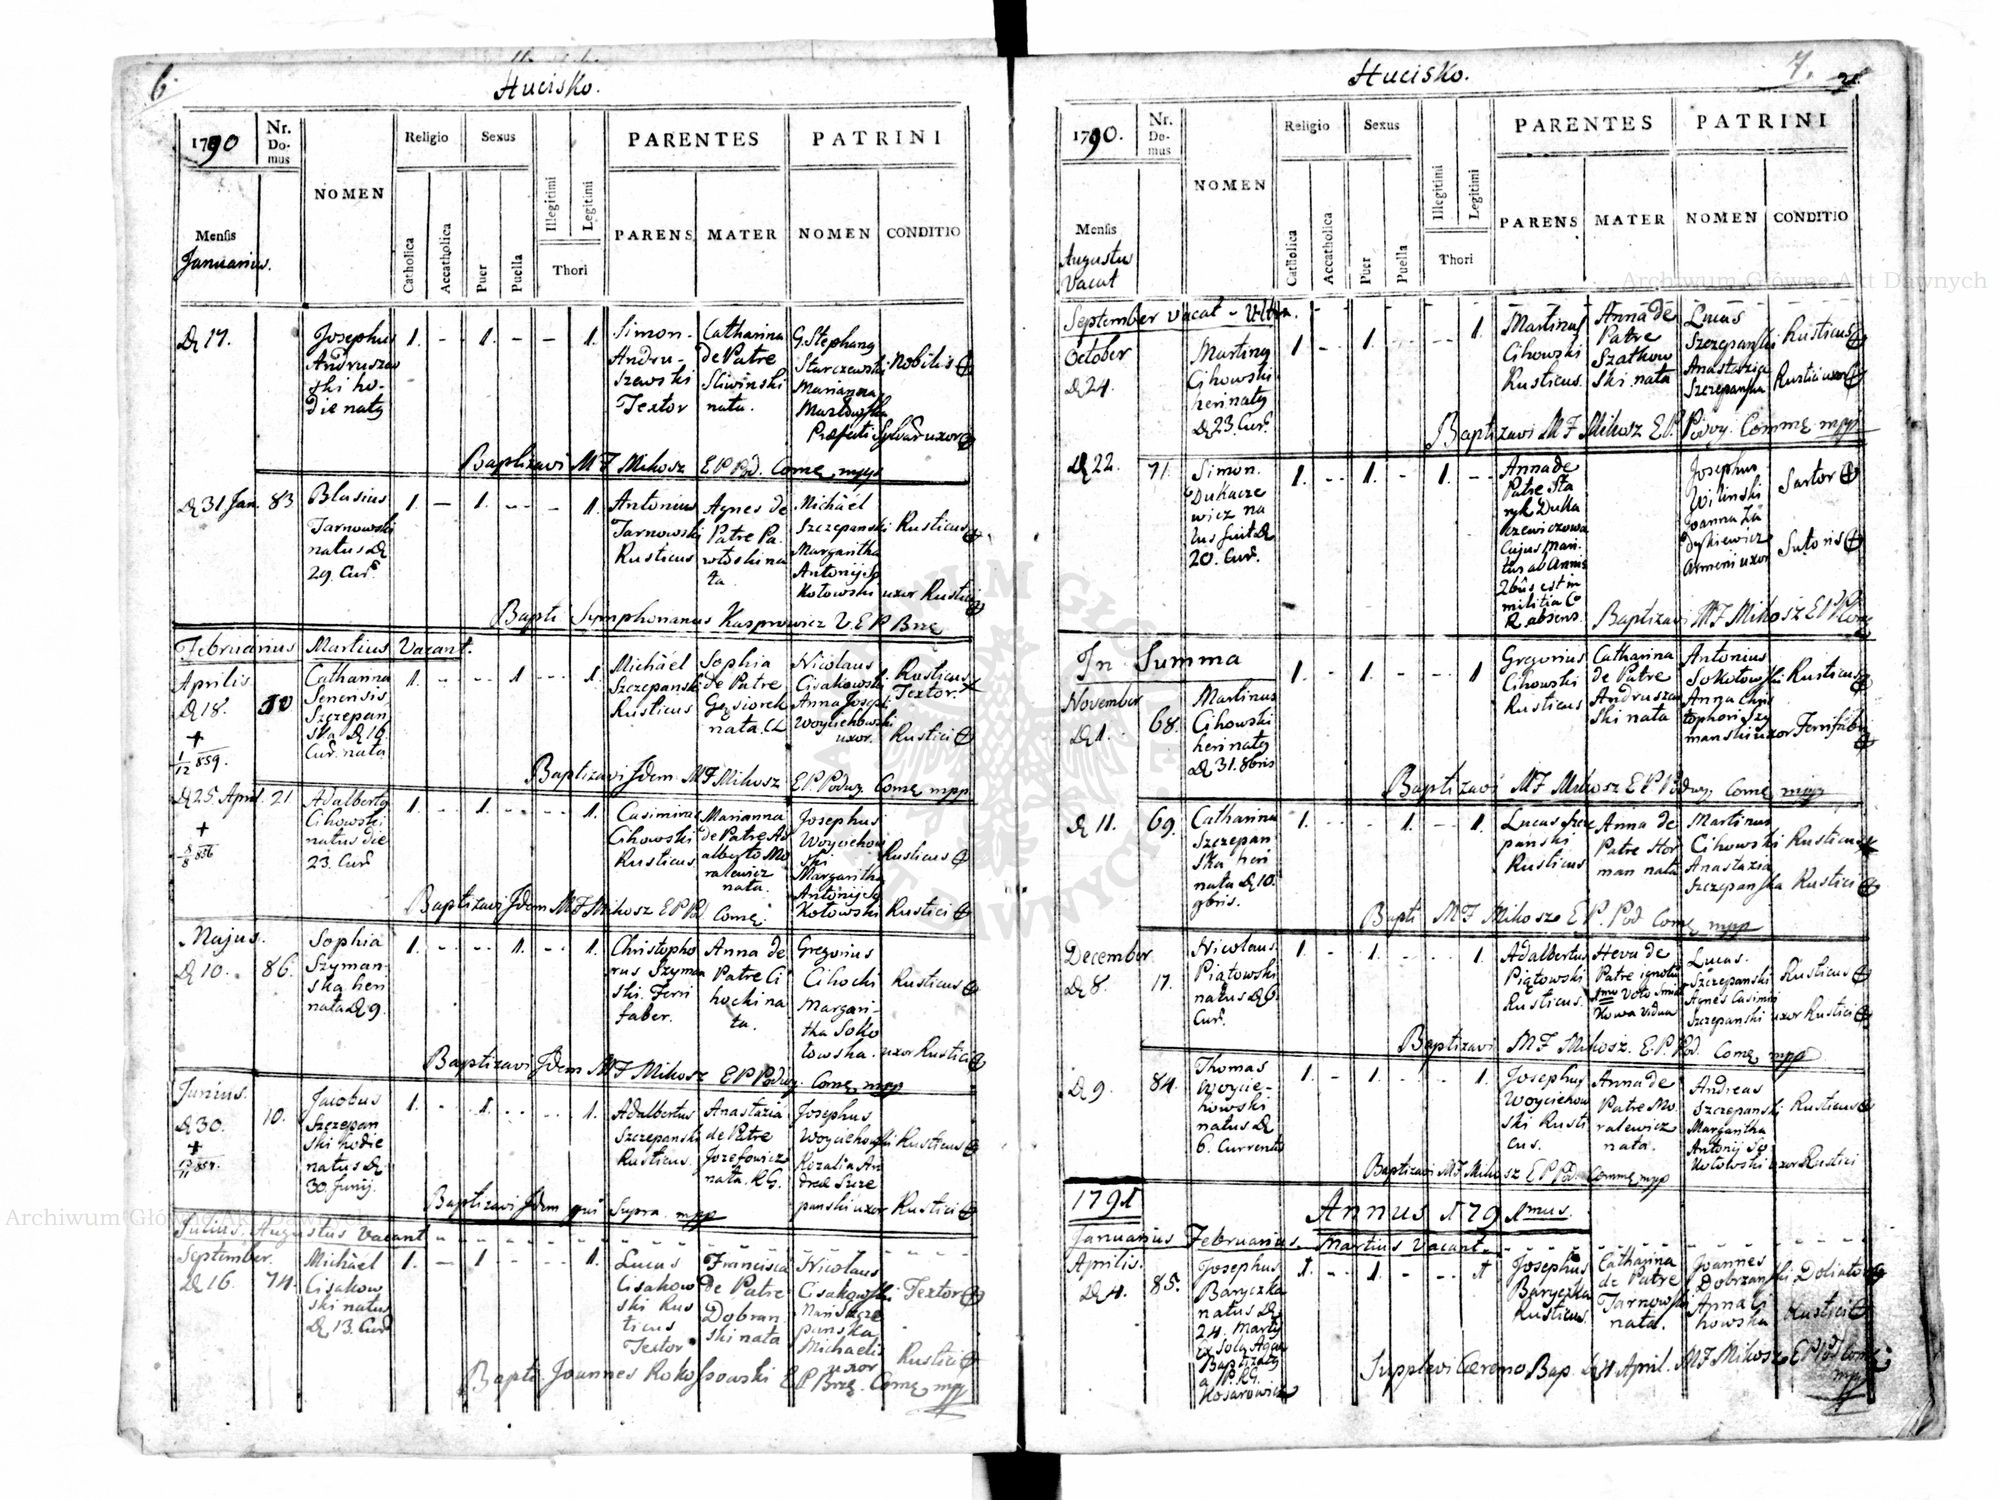 6.
Hucisko.
1790
Nr. Do-mus
NOMEN
Religio
Sexus
PARENTES
PATRINI
Mensis
Januarius.
Catholica
Accatholica
Puer
Puella
Illegitimi
Legitimi
Thori
PARENS
MATER
NOMEN
CONDITIO
D 17.
Josephus
Andruszew
ski ho-
die natus
1. - 1. - - 1.
Simon
Andru-
szewski
Textor
Catharina
de Patre
Sliwinski
nata.
G. Stephany
Starczewski
Marianna
Nobilis
Baptizavi MF Mikosz E P Pod. Come mpp
D 31 Jan.
83.
Blasius
Tarnowski
natus D
29. Cur.
1. - 1. - - 1.
Antonius
Tarnowski
Rusticus
Agnes de
Patre Pa-
wloski na
ta
Michaël
Szczepanski
Margaritha
Antonij So
kołowski uxor Rustici
Rusticus
Bapti Symphorianus Kasprowicz V. E P. Brze
Februarius Martius Vacant.
Aprilis
D 18.
1/12 859.
Catharina
Senensis
Szczepan
ska D 16
Cur. nata
1. - - 1 - 1.
Michaël
Szczepanski
Rusticus
Sophia
de Patre
Gęsiorek
nata.
Nicolaus
Cisakowski
Anna Joseph
Woyciechowski
uxor.
Rusticus
Textor.
Rustici
Baptizavi Idem MF Mikosz E P. Podwy Come mpp
D 25 April.
8/8 856
21.
Adalbertus
Cihowski
natus die
23. Cur.
1. - 1. - - 1.
Casimirus
Cihowski
Rusticus
Marianna
de Patre Ad
alberto Mo
ralewicz
nata.
Josephus
Woyciechow
ski
Margaritha
Antonij So
kołowski
Rusticus
Rustici
Baptizavi Idem MF Mikosz E P Pod. Come
Majus.
D 10.
86.
Sophia
Szyman-
ska heri
nata D 9.
1. - - 1. - 1.
Christopho
rus Szyman
ski. Ferri
faber.
Anna de
Patre Ci
hocki na
ta.
Gregorius
Cihocki
Margari-
tha Soko
łowska. uxor Rustici
Rusticus
Baptizavi Idem MF Mikosz E P Podwy. Come mpp
Junius.
D 30.
10.
Jacobus
Szczepan
ski hodie
natus D
30 Junij.
1. - 1. - - 1.
Adalbertus
Szczepanski
Rusticus.
Anastazia
de Patre
Jozefowicz
nata. RG.
Josephus
Woyciehowski
Rozalia An
dreæ Szcze
panski uxor Rustici
Rusticus
Baptizavi Idem qui Supra. mpp
Julius, Augustus Vacant
September.
D 16.
74.
Michaël
Cisakow
ski natus
D 13. Cur
1. - 1. - - 1.
Lucas
Cisakow
ski Rus
ticus
Textor
Francisca
de Patre
Dobran
ski nata
Nicolaus
Cisakowski
panska
Michaelis
uxor
Textor
Rustici
Bapti. Joannes Rokossowski E P Brze. Come mpp
7.
Hucisko.
1790.
Nr. Do-mus
NOMEN
Religio
Sexus
PARENTES
PATRINI
Mensis
Augustus
Vacat
Catholica
Accatholica
Puer
Puella
Illegitimi
Legitimi
Thori
PARENS
MATER
NOMEN
CONDITIO
September vacat - Ultra.
October
D 24.
Martinus
Cihowski
heri natus
D 23. Cur.
1 - 1. - - 1.
Martinus
Cihowski
Rusticus.
Anna de
Patre
Szatkow
ski nata
Lucas
Szczepanski
Anastazia
Szczepanska
Rusticus
Rustici uxor
Baptizavi MF Mikosz E P. Podwy. Come mpp
D 22.
71.
Simon.
Dukacze
wicz na
tus fuit D
20. Cur.
1. - 1. - 1. -
Anna de
Patre Sta
ryk Duka
czewiczowa
Cujus Mari-
tus ab Annis
2bus est in
militia C
R absens.
Josephus
Wilinski
Joanna Za
dyskiewicz
Armeni uxor
Sartor
Sutoris
Baptizavi MF Mikosz E P P Come
In Summa
November
D 1.
68.
Martinus
Cihowski
heri natus
D 31. 8bris
1. - 1. - - 1
Gregorius
Cihowski
Rusticus
Catharina
de Patre
Andruszew
ski nata
Antonius
Sokołowski
Anna Chris
tophori Szy
manski uxor Ferrifabri
Rusticus
Baptizavi MF Mikosz E P Podwy. Come mpp
D 11.
69.
Catharina
Szczepan
ska heri
nata D 10.
9bris.
1. - - 1. - 1.
Lucas Szcze
panski
Rusticus
Anna de
Patre Hor
man nata
Martinus
Cihowski
Anastazia
Szczepanska
Rusticus
Rustici
Bapti MF Mikosz E P. Pod Come mpp
December
D 8.
17.
Nicolaus
Piątowski
natus D 6
Cur.
1. - 1. - - 1.
Adalbertus
Piątowski
Rusticus.
Heva de
Patre ignotu
Lucas.
Szczepanski
Agnes Casimiri
Szczepanski uxor Rustici
Rusticus
Baptizavi MF Mikosz. E. P. Pod. Come mpp
D 9.
84.
Thomas
Woycie-
howski
natus D
6. Currentis
1. - 1. - - 1.
Josephus
Woyciehow
ski Rusti
cus.
Anna de
Patre Mo
ralewicz
nata.
Andreas
Szczepanski
Margaritha
Antonij So
kołowski uxor Rustici
Rusticus
Baptizavi MF Mikosz E P Pod Come mpp
1791
Annus 1791mus.
Januarius Februarius Martius Vacant
Aprilis.
D 4.
85.
Josephus
Baryczka
natus D
24. Martij
Ex Sola Aqua
Baptizatus
a P. RG.
Kosarowicz
1. - 1. - - 1
Josephus
Baryczka
Rusticus.
Catharina
de Patre
Tarnowski
nata.
Joannes
Dobrzanski
Anna Ci
howska
Doliator
Rustici
Supplevi Cæremo Bap. D 4 April. MF Mikosz E P Pod Come
mpp
Archiwum Główne Akt Dawnych
Archiwum Główne Akt Dawnych
ARCHIWUM GŁÓWNE AKT DAWNYCH